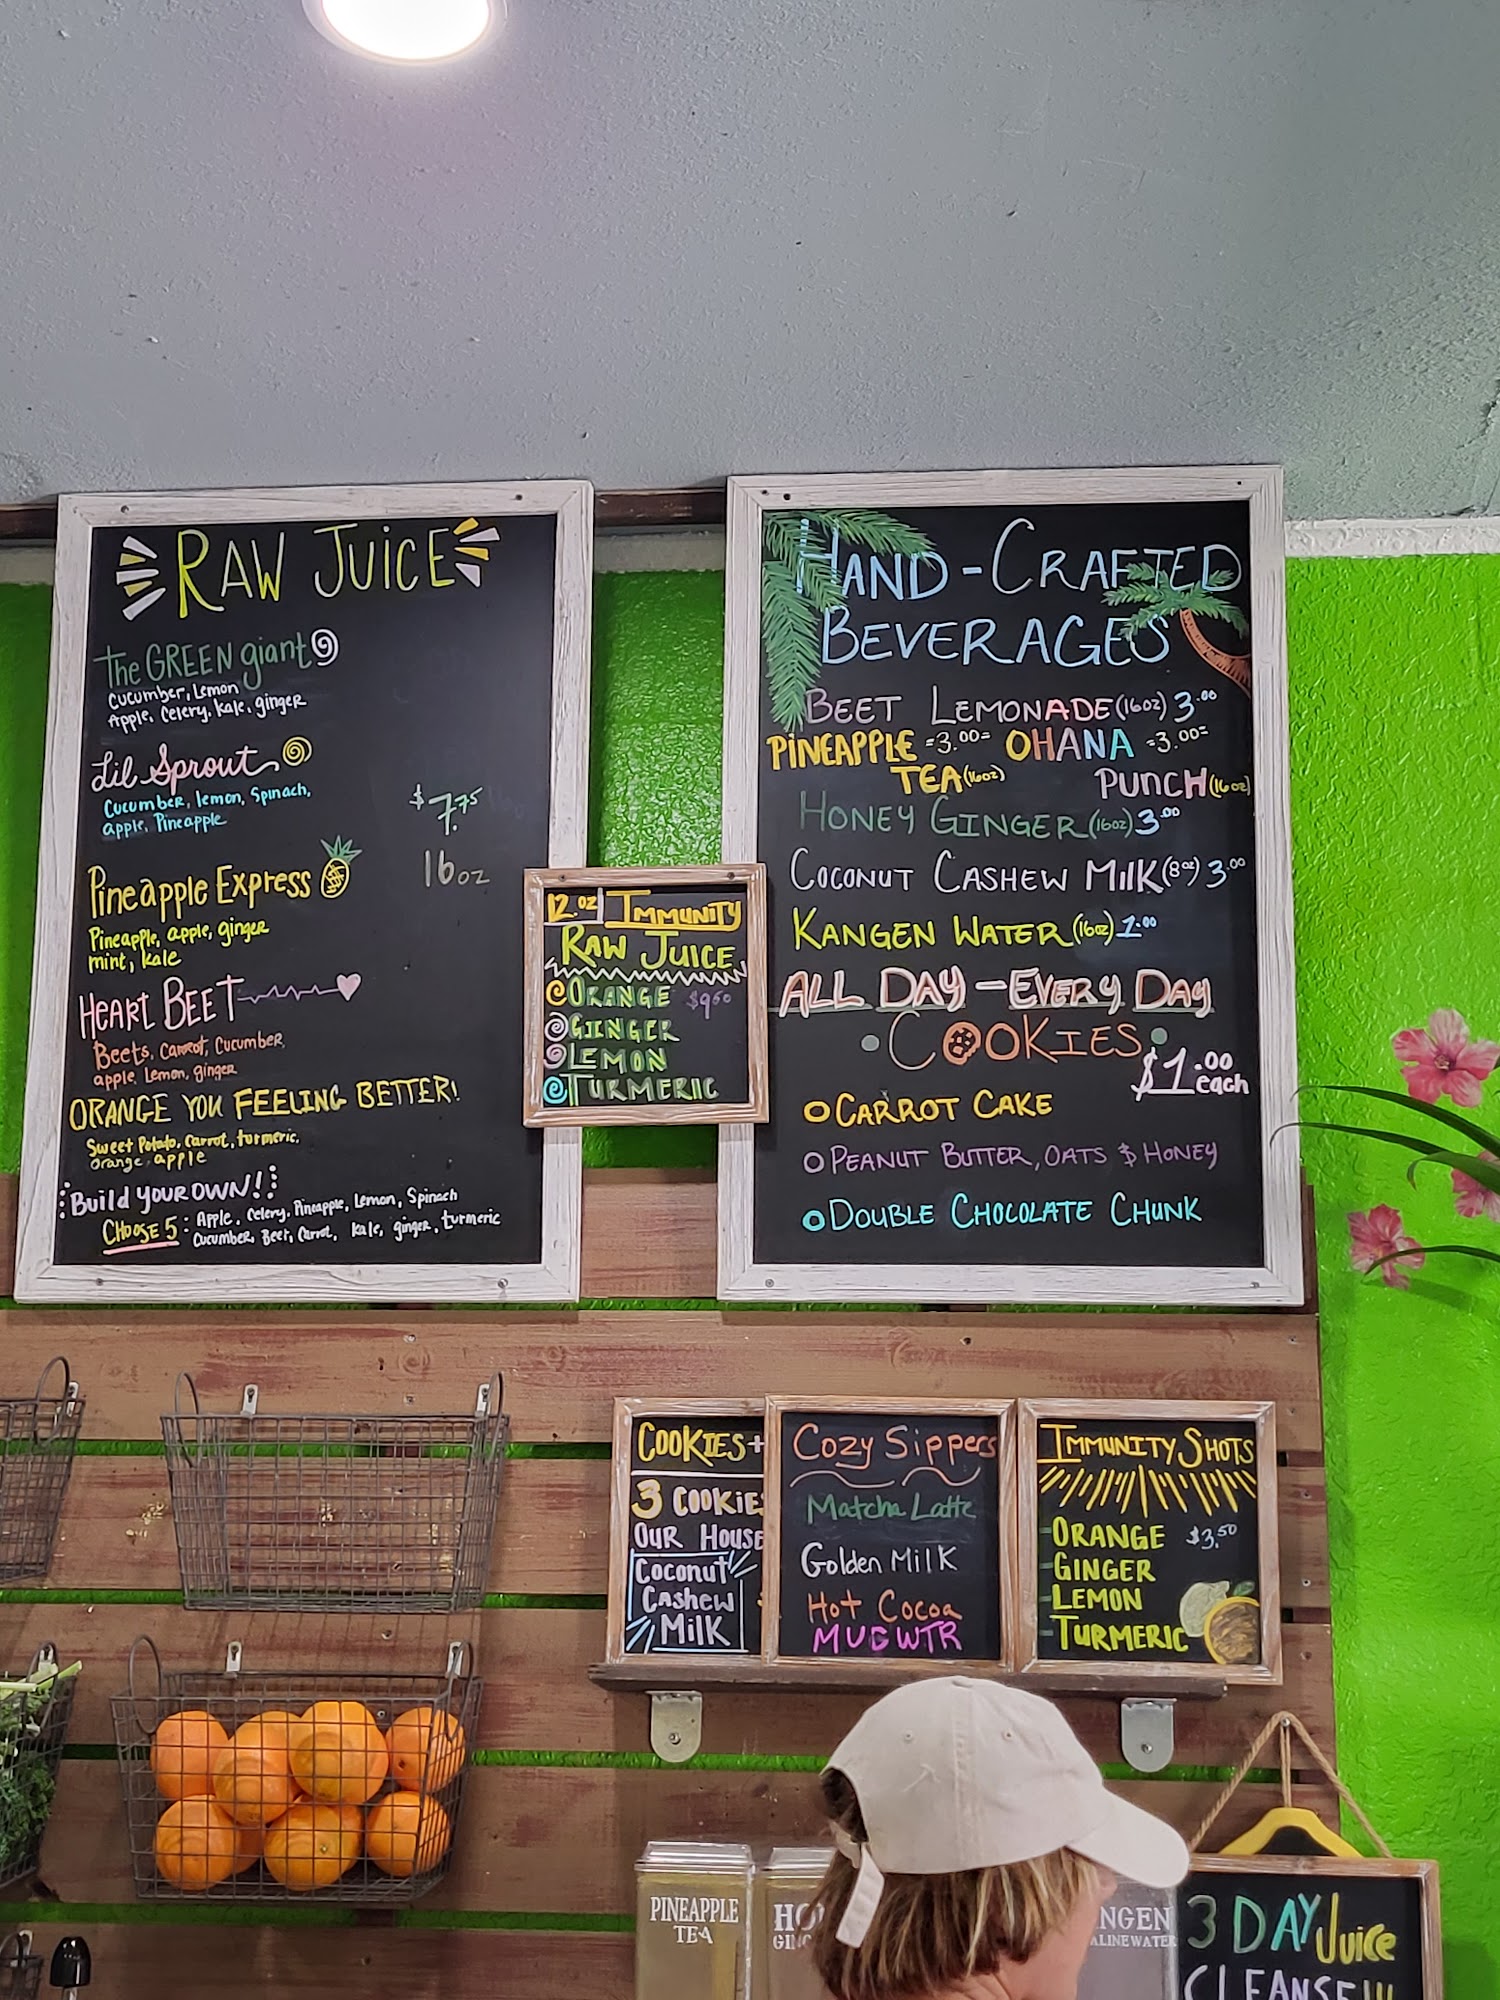 RAW JUICE
The GREEN giant
cucumber, Lemon
Apple, Celery, kale, ginger
Lil Sprout
Cucumber, lemon, Spinach,
apple, Pineapple
$7.75
16oz
Pineapple Express
Pineapple, apple, ginger
mint, kale
HEART BEET
Beets, Carrot, Cucumber,
apple, Lemon, ginger
ORANGE YOU FEELING BETTER!
Sweet Potato, carrot, turmeric,
orange, apple
Build YOUR OWN!!
CHOOSE 5: Apple, Celery, Pineapple, Lemon, Spinach
Cucumber, Beet, Carrot, kale, ginger, turmeric
12.oz IMMUNITY
RAW JUICE
ORANGE $9.50
GINGER
LEMON
TURMERIC
HAND-CRAFTED
BEVERAGES
BEET LEMONADE (16oz) 3.00
PINEAPPLE =3.00= OHANA =3.00=
TEA (16oz) PUNCH (16oz)
HONEY GINGER (16oz) 3.00
COCONUT CASHEW MILK (8oz) 3.00
KANGEN WATER (16oz) 1.00
ALL DAY - EVERY DAY
COOKIES
$1.00 each
CARROT CAKE
PEANUT BUTTER, OATS & HONEY
DOUBLE CHOCOLATE CHUNK
COOKIES+
3 COOKIE
OUR HOUSE
Coconut
Cashew
Milk
Cozy Sippers
Matcha Latte
Golden Milk
Hot Cocoa
MUDWTR
IMMUNITY SHOTS
ORANGE $3.50
GINGER
LEMON
TURMERIC
PINEAPPLE
TEA
HO
GING
NGEN
ALINE WATER
3 DAY Juice
CLEANSE!!!